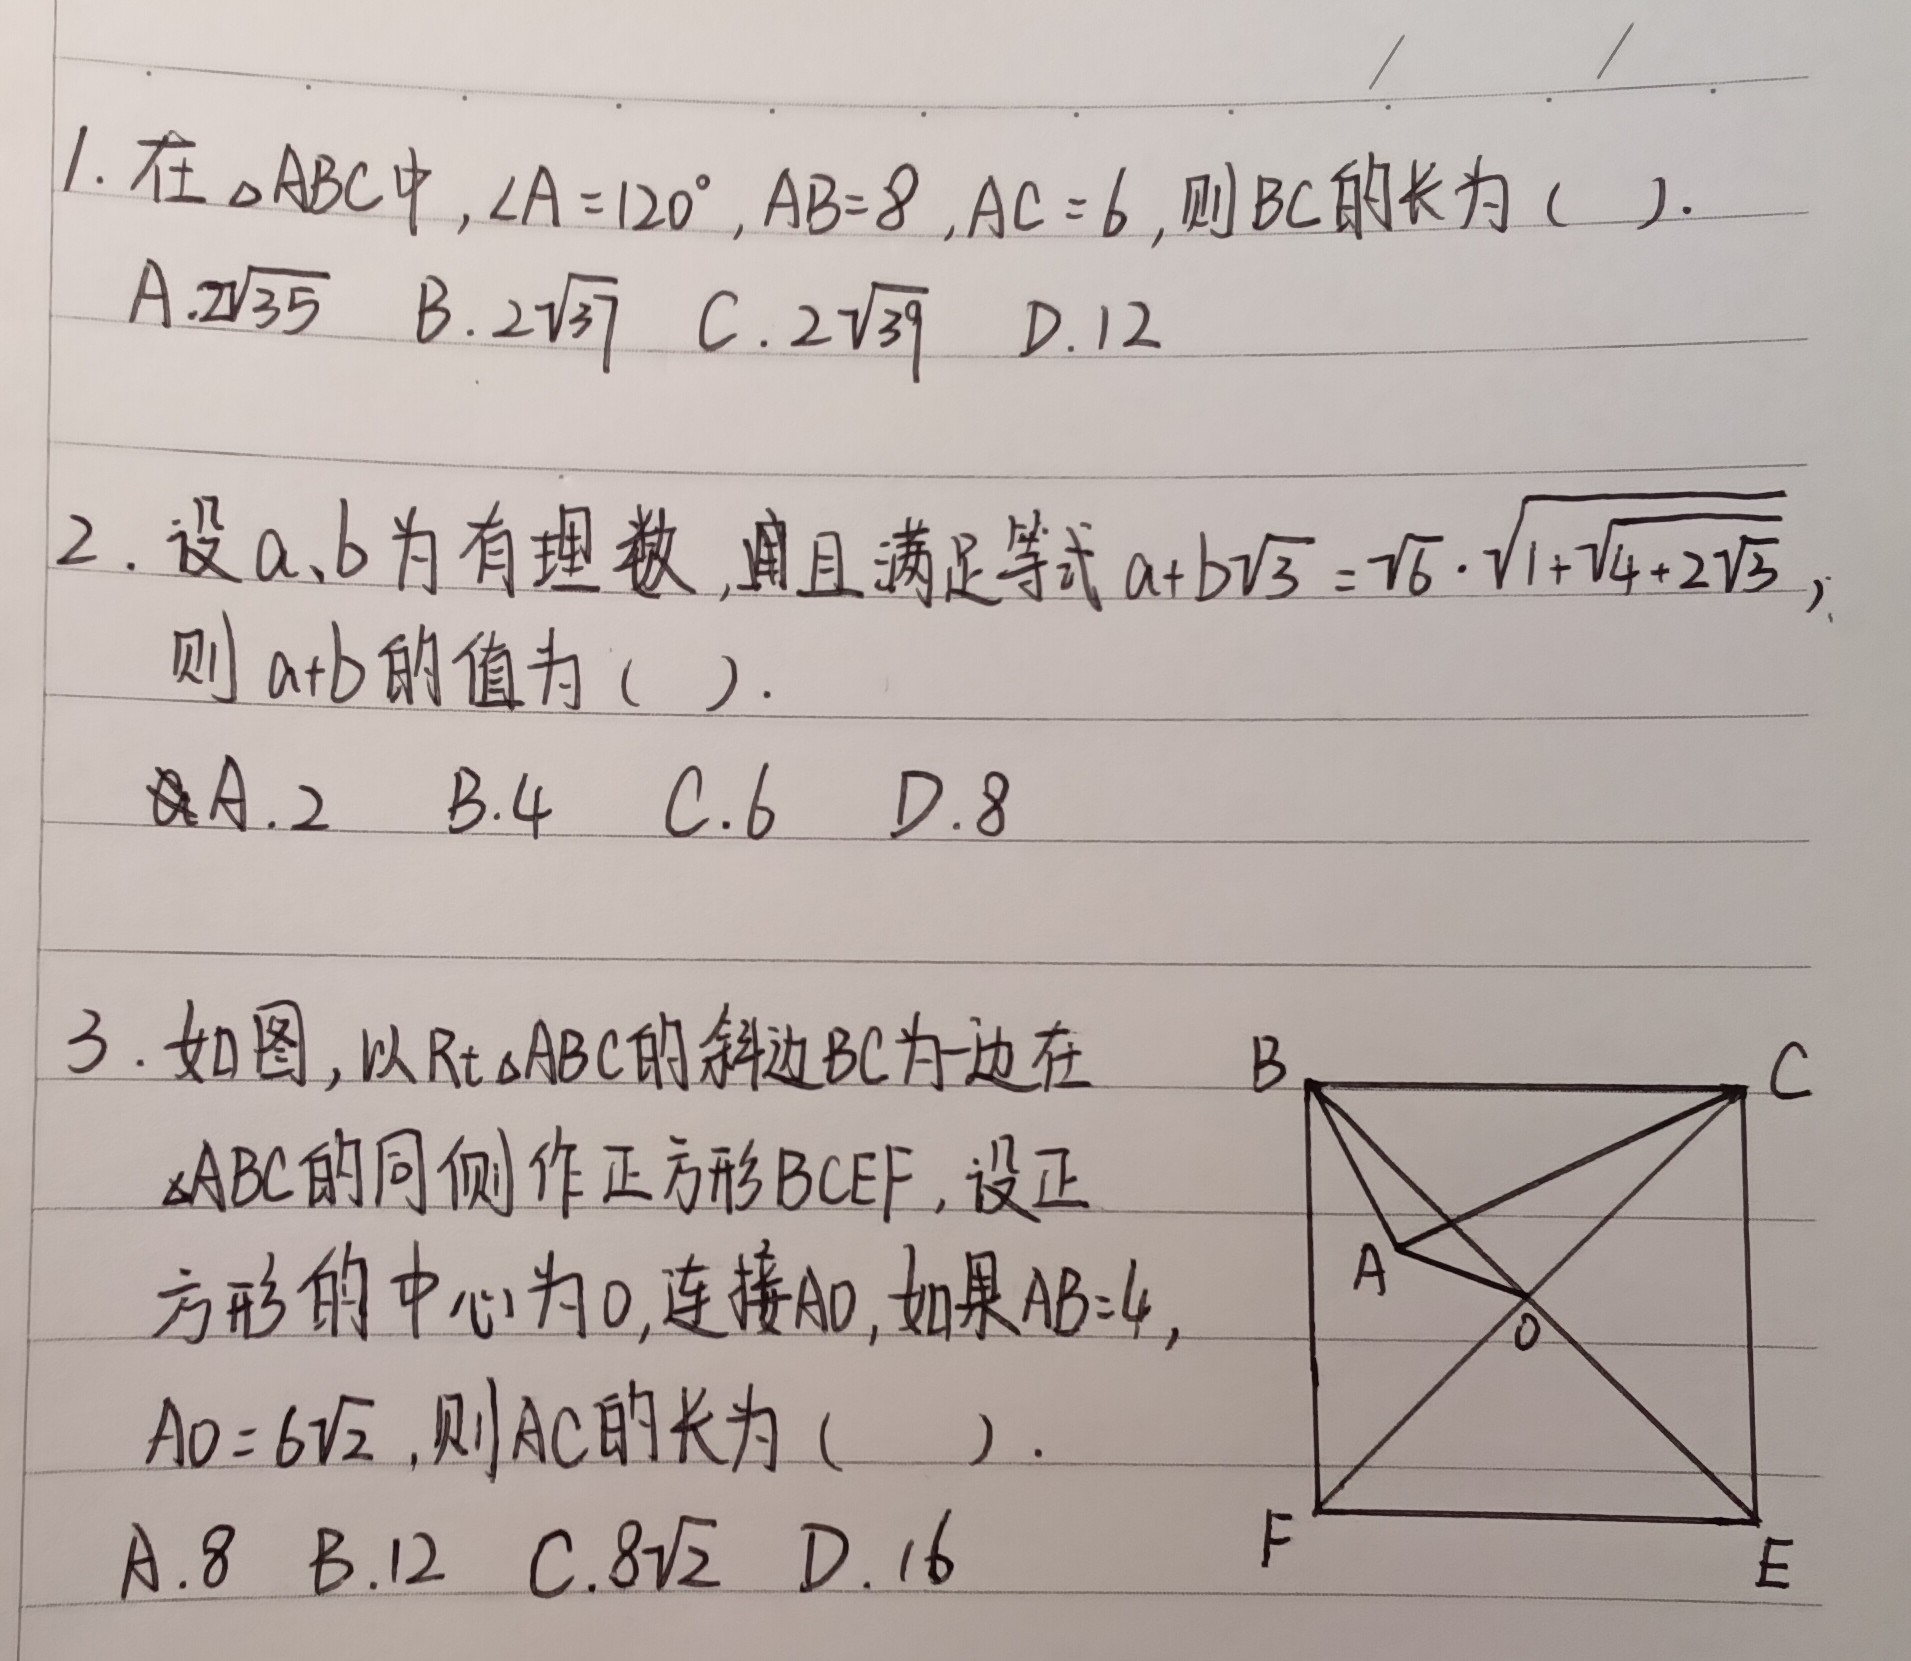 1. 在△ABC中,∠A=120°,AB=8,AC=6,则BC的长为( ).
A.2√35 B.2√37 C.2√39 D.12
2.设a、b为有理数,且满足等式a+b√3=√6·√(1+√(4+2√3)),
则a+b的值为( ).
A.2 B.4 C.6 D.8
3.如图,以Rt△ABC的斜边BC为一边在
△ABC的同侧作正方形BCEF,设正
方形的中心为O,连接AO,如果AB=4,
AO=6√2,则AC的长为( ).
A.8 B.12 C.8√2 D.16
B C
A
O
F E